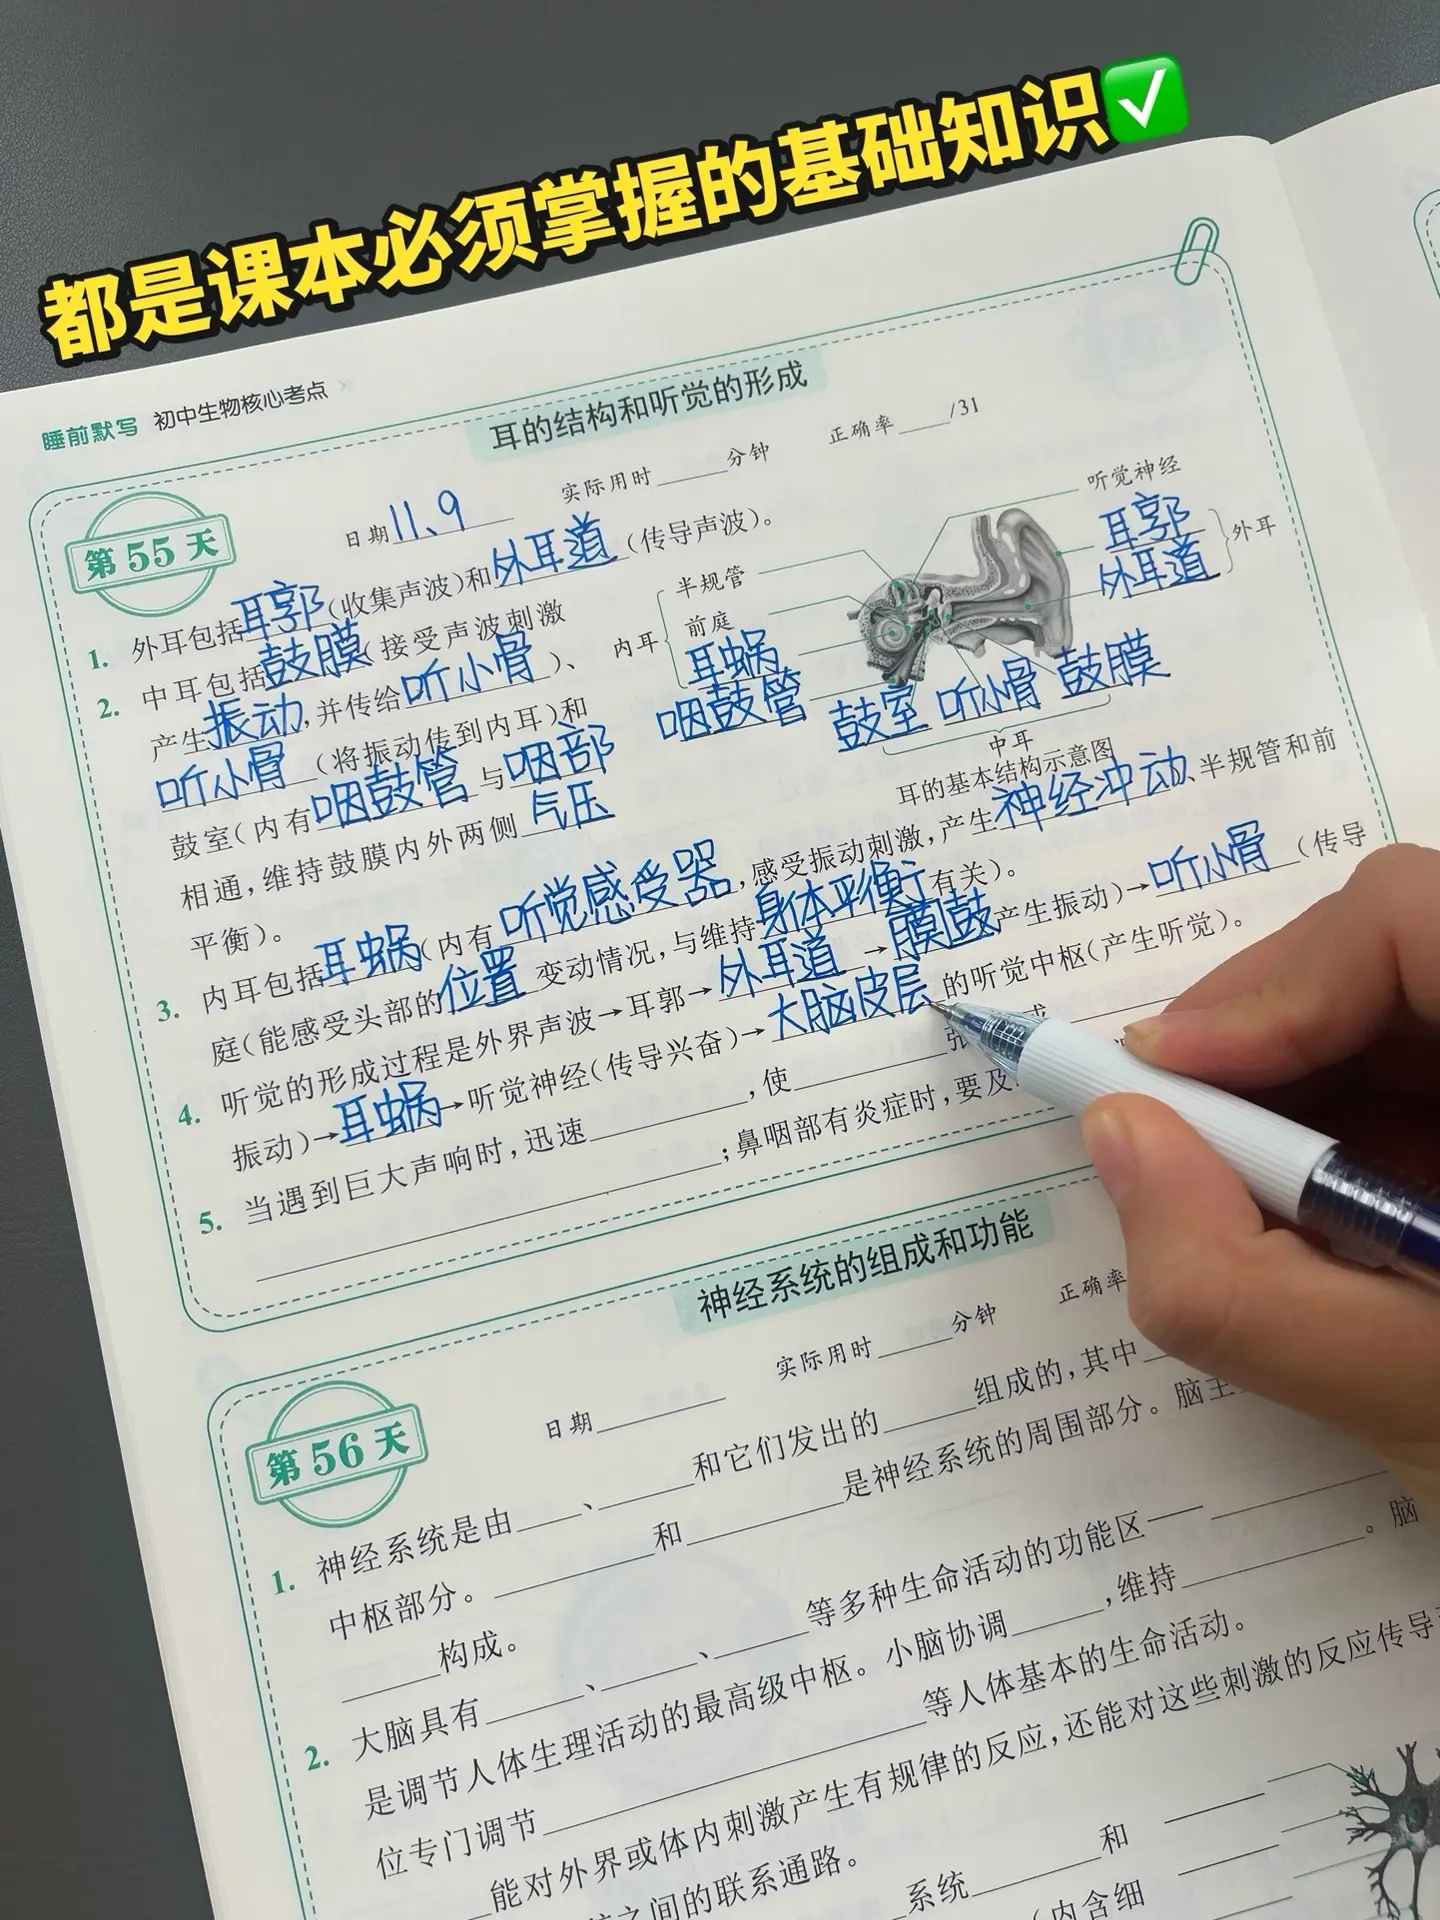 都是课本必须掌握的基础知识✅
睡前默写 初中生物核心考点
耳的结构和听觉的形成
第55天
日期11、9 实际用时____分钟 正确率____/31
1. 外耳包括耳郭(收集声波)和外耳道(传导声波)。
2. 中耳包括鼓膜(接受声波刺激
产生振动,并传给听小骨)、
听小骨(将振动传到内耳)和
鼓室(内有咽鼓管与咽部
相通,维持鼓膜内外两侧气压
平衡)。
听觉神经
耳郭
外耳道
外耳
半规管
前庭
耳蜗
内耳
咽鼓管
鼓室 听小骨 鼓膜
中耳
耳的基本结构示意图
3. 内耳包括耳蜗(内有听觉感受器,感受振动刺激,产生神经冲动、半规管和前
庭(能感受头部的位置变动情况,与维持身体平衡有关)。
4. 听觉的形成过程是外界声波→耳郭→外耳道→膜鼓产生振动)→听小骨(传导
振动)→耳蜗→听觉神经(传导兴奋)→大脑皮层的听觉中枢(产生听觉)。
5. 当遇到巨大声响时,迅速________,使________张
________;鼻咽部有炎症时,要及
神经系统的组成和功能
第56天
日期____ 实际用时____分钟 正确率
1. 神经系统是由____、____和它们发出的____组成的,其中____
中枢部分。____和____是神经系统的周围部分。脑主
____构成。
2. 大脑具有____、____、____等多种生命活动的功能区——____
是调节人体生理活动的最高级中枢。小脑协调____,维持____。脑
位专门调节____等人体基本的生命活动。
____能对外界或体内刺激产生有规律的反应,还能对这些刺激的反应传导
之间的联系通路。
系统____和
(内含细